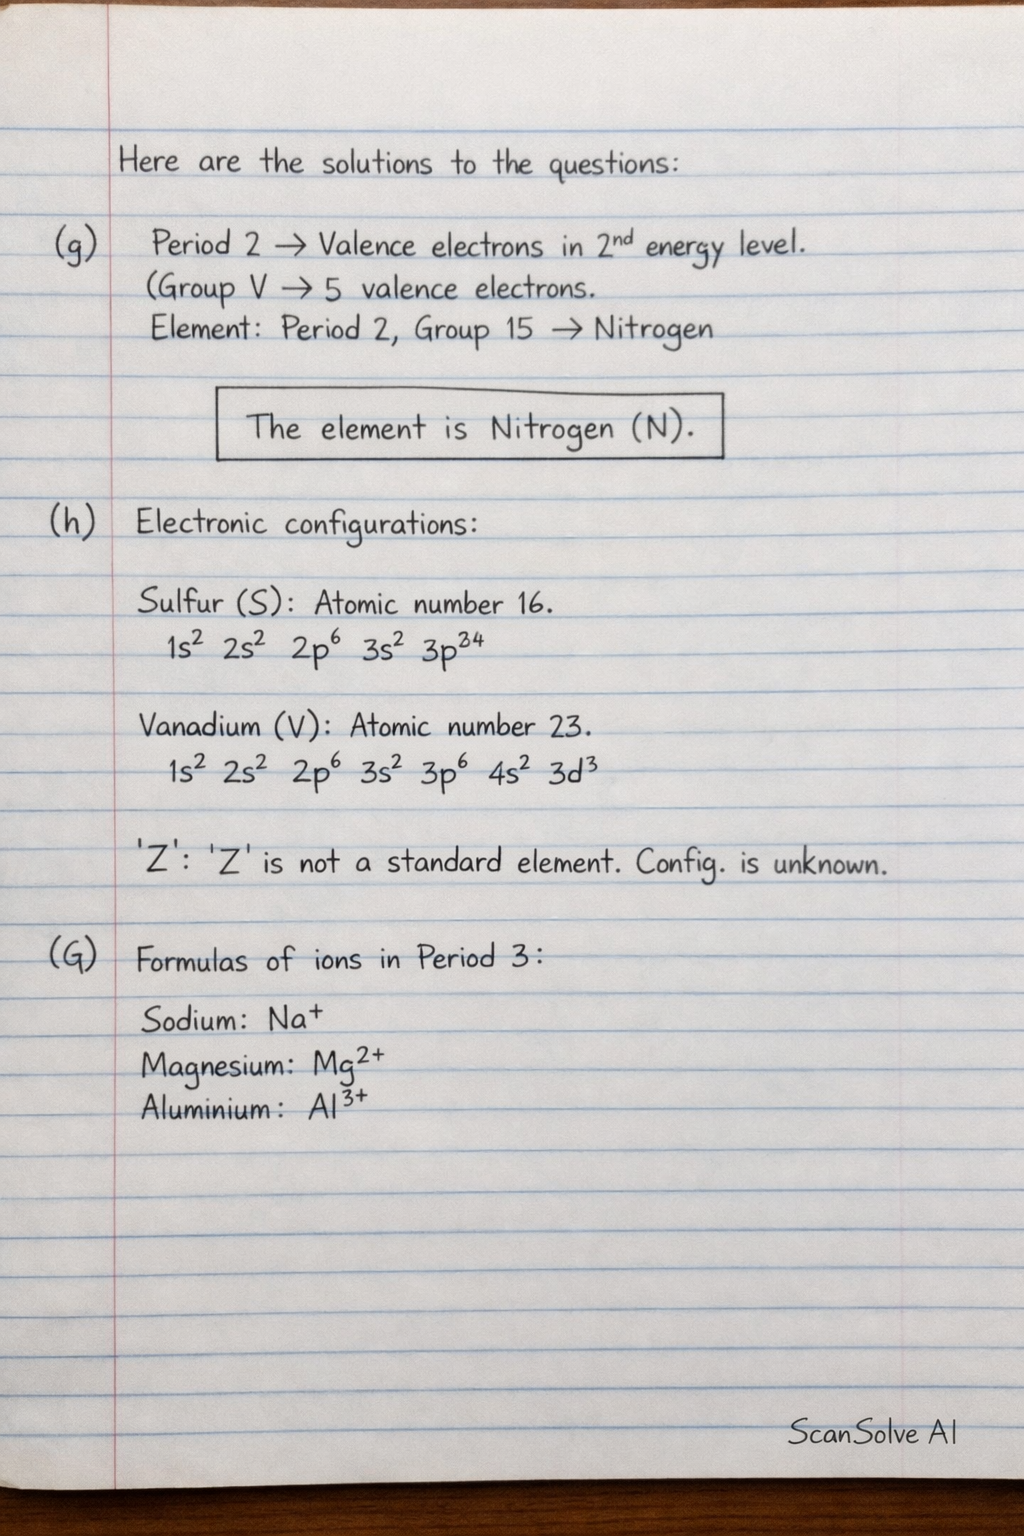 Here are the solutions to the questions:
(g) Period 2 → Valence electrons in 2ⁿᵈ energy level.
(Group V → 5 valence electrons.
Element: Period 2, Group 15 → Nitrogen
The element is Nitrogen (N).
(h) Electronic configurations:
Sulfur (S): Atomic number 16.
1s² 2s² 2p⁶ 3s² 3p³⁴
Vanadium (V): Atomic number 23.
1s² 2s² 2p⁶ 3s² 3p⁶ 4s² 3d³
'Z': 'Z' is not a standard element. Config. is unknown.
(G) Formulas of ions in Period 3:
Sodium: Na⁺
Magnesium: Mg²⁺
Aluminium: Al³⁺
ScanSolve AI